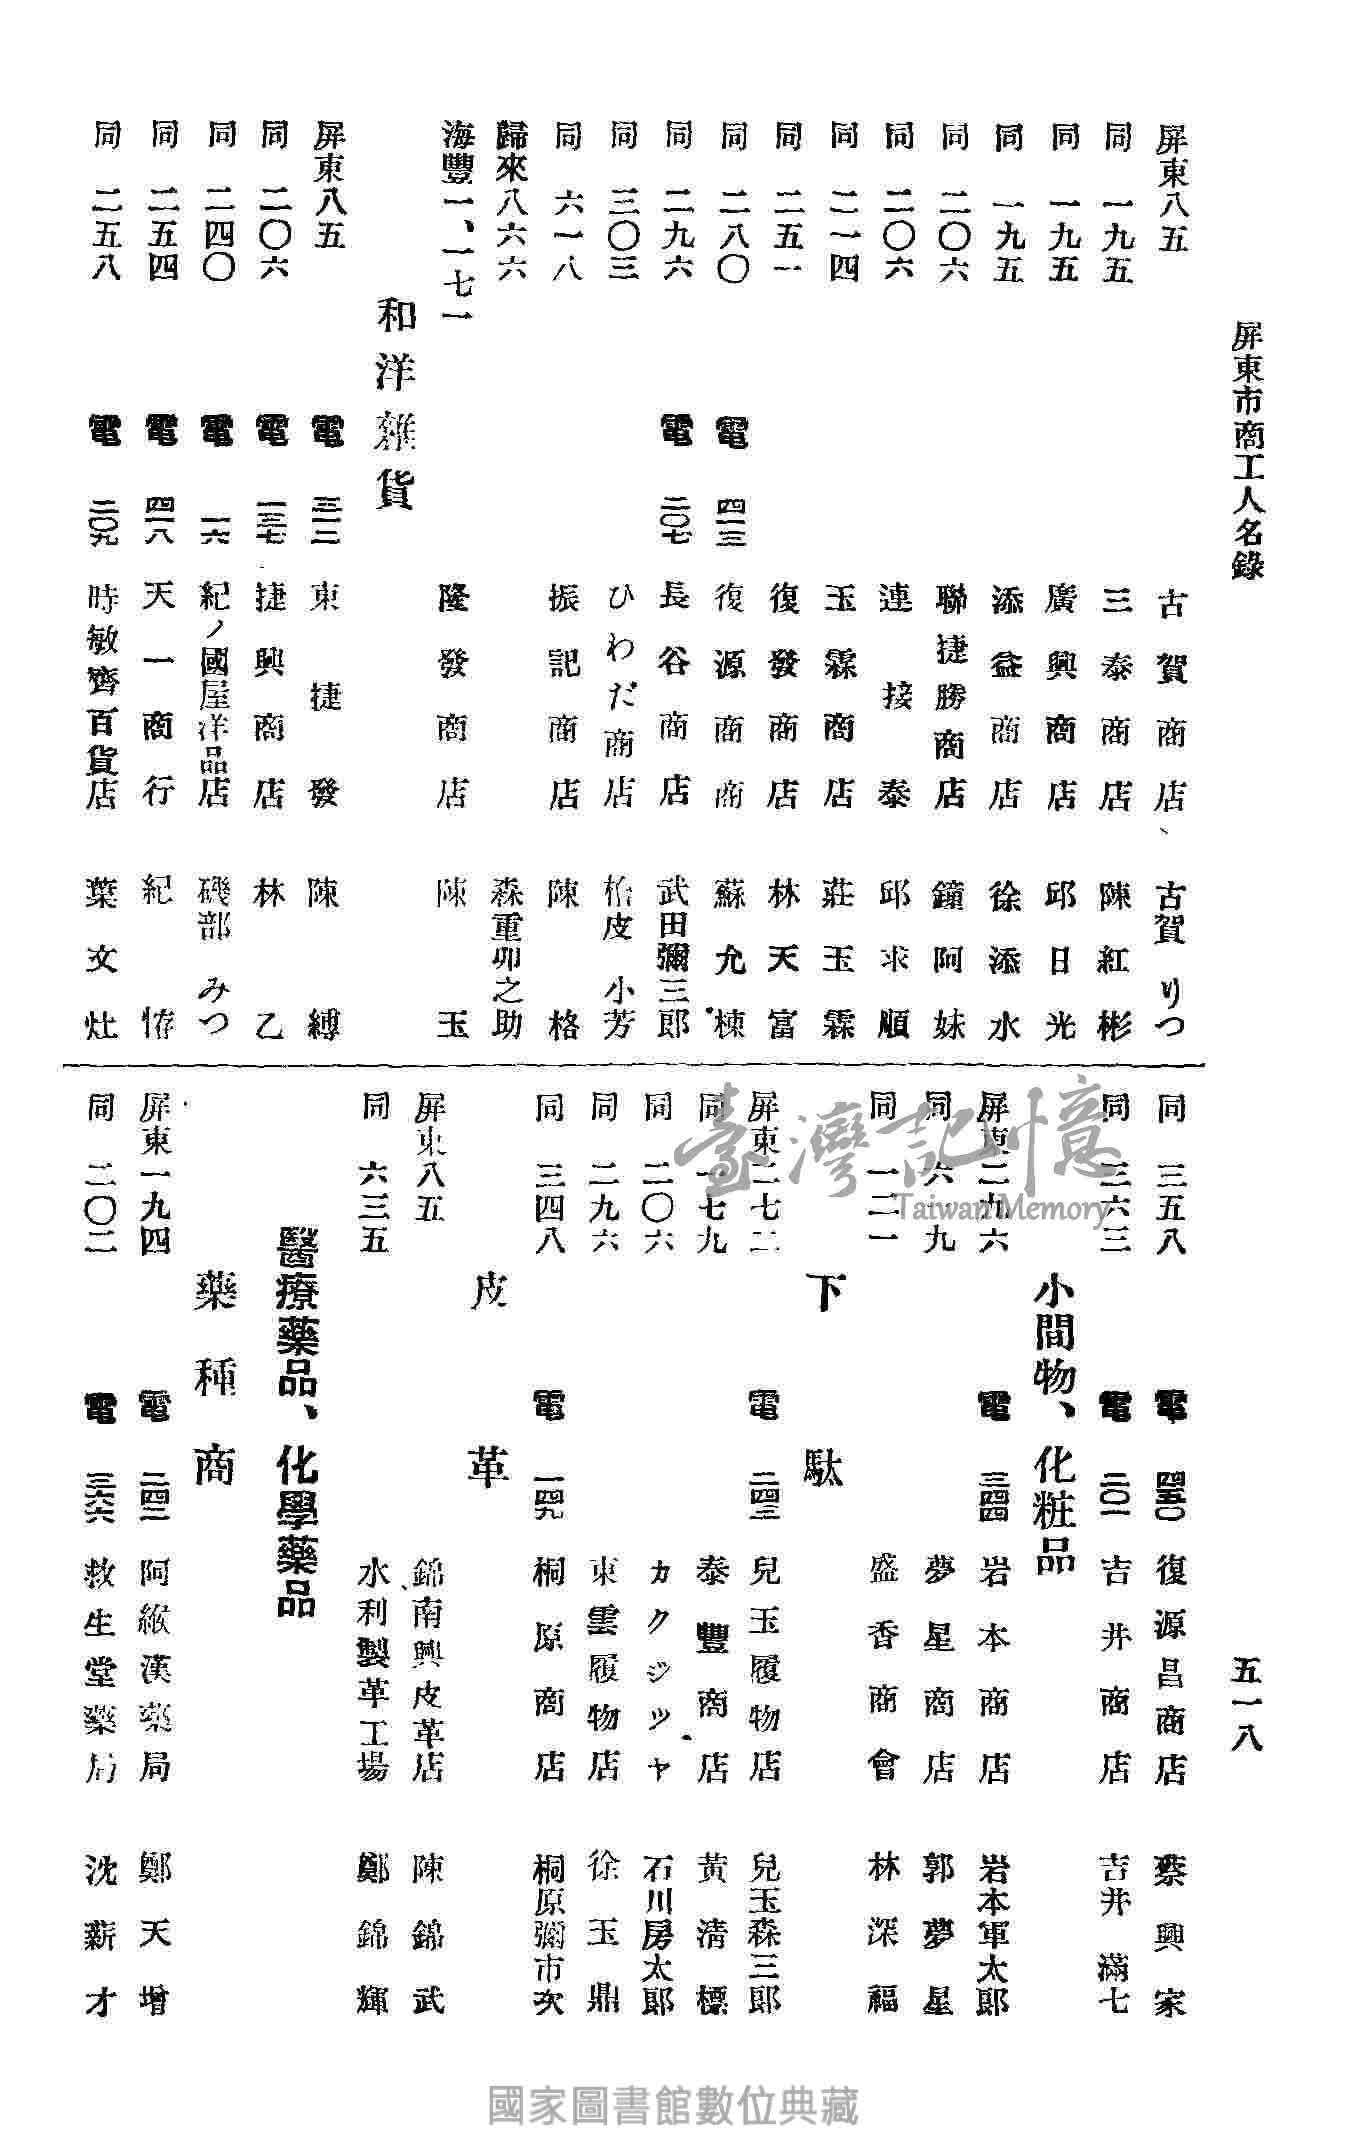 屏東市商工人名錄
五一八
屏東八五 古賀商店、 古賀りつ
同 一九五 三泰商店 陳紅彬
同 一九五 廣興商店 邱日光
同 一九五 添益商店 徐添水
同 二〇六 聯捷勝商店 鐘阿妹
同 二〇六 連接泰 邱求順
同 二一四 玉霖商店 莊玉霖
同 二五一 復發商店 林天富
同 二八〇 電 四一三 復源商商 蘇允棟
同 二九六 電 二〇七 長谷商店 武田彌三郎
同 三〇三 ひわだ商店 桧皮小芳
同 六一八 振記商店 陳格
歸來八六六 森重卯之助
海豐一、一七一 隆發商店 陳玉
和洋雜貨
屏東八五 電 三一二 東捷發 陳縛
同 二〇六 電 一三七 捷興商店 林乙
同 二四〇 電 一六 紀ノ國屋洋品店 磯部みつ
同 二五四 電 四一八 天一商行 紀
同 二五八 電 二〇九 時敏齊百貨店 葉文灶
同 三五八 電 四五〇 復源昌商店 蔡興家
同 三六三 電 二〇一 吉井商店 吉井滿七
小間物、化粧品
屏東二九六 電 三四四 岩本商店 岩本軍太郎
同 六一九 夢星商店 郭夢星
同 一二一 盛香商會 林深福
下駄
屏東二七二 電 二四三 兒玉履物店 兒玉森三郎
同 一七九 泰豐商店 黃淸標
同 二〇六 カクジツヤ 石川房太郎
同 二九六 東雲履物店 徐玉鼎
同 三四八 電 一四九 桐原商店 桐原彌市次
皮革
屏東八五 錦南興皮革店 陳錦武
同 六三五 水利製革工場 鄭錦輝
醫療藥品、化學藥品
藥種商
屏東一九四 電 二四二 阿緱漢藥局 鄭天增
同 二〇二 電 三六六 救生堂藥局 沈薪才
臺灣記憶
Taiwan Memory
國家圖書館數位典藏